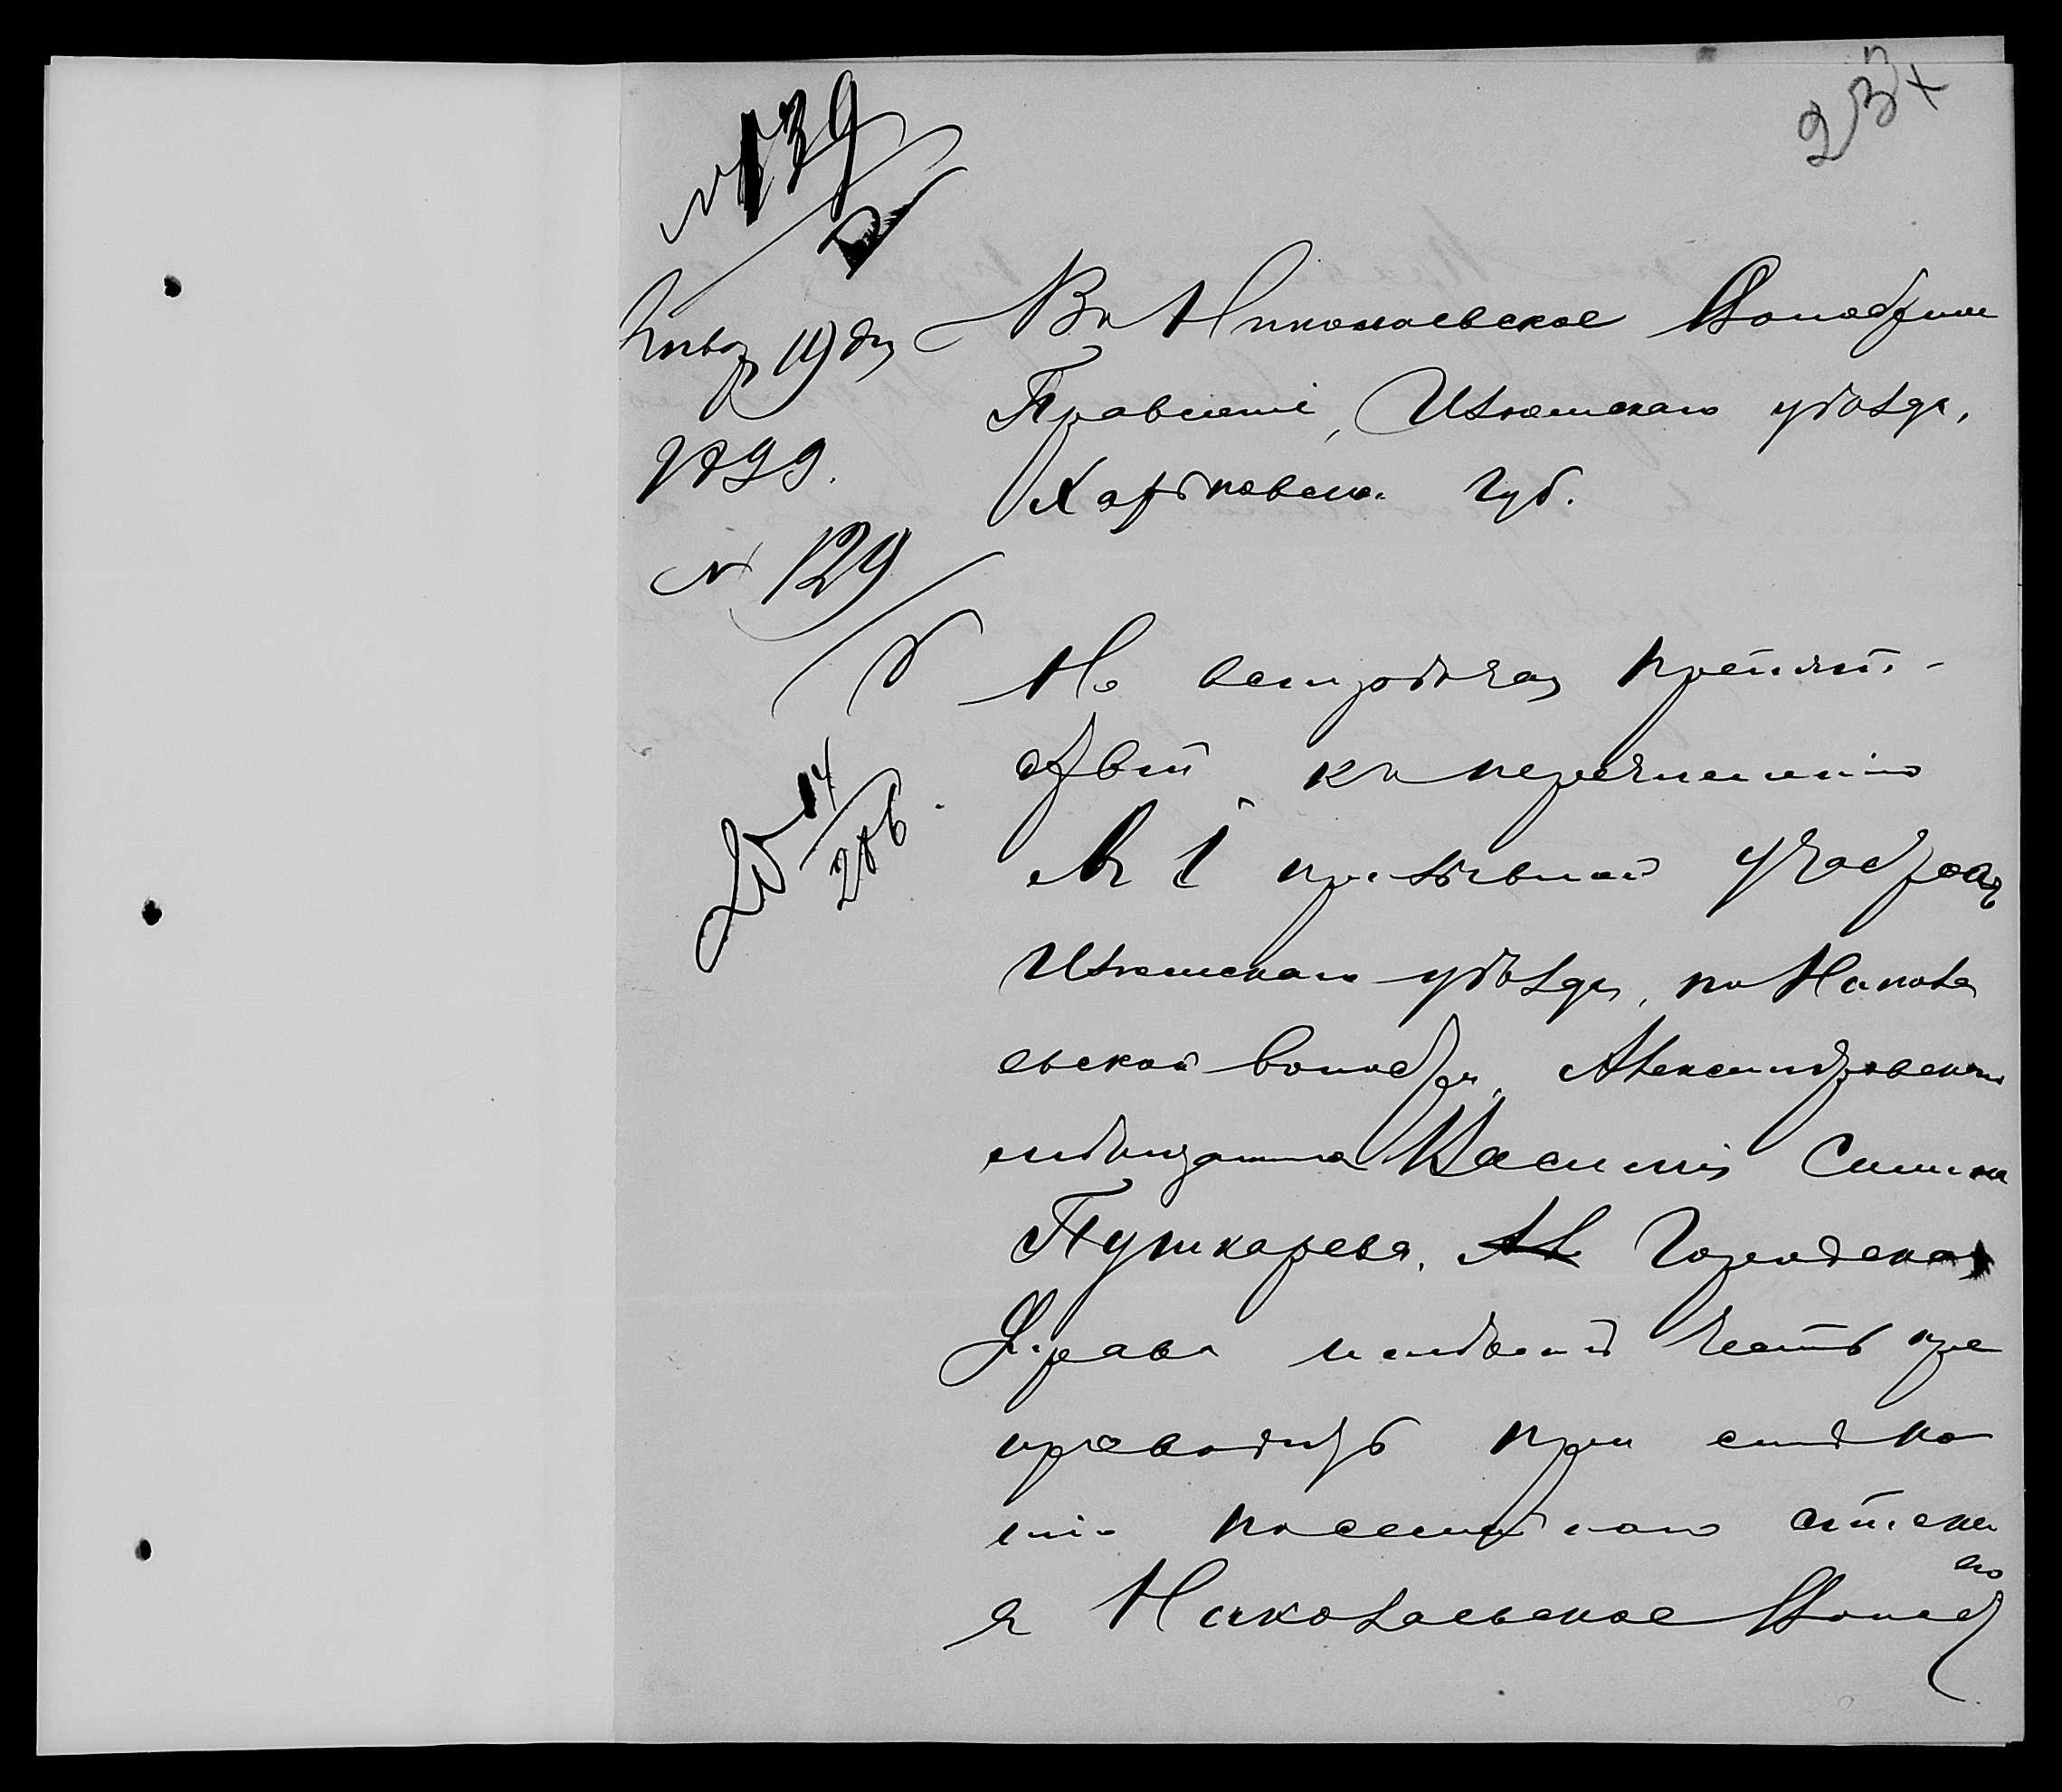 23
№ 139
Январ 19 дн
1899.
№ 129
14
206
Въ Николаевское Волостное
Правленіе, Изюмскаго уѣзда,
Харьковской Губ.
Не встрѣчая препят-
ствій къ перечисленію
въ 1 призывной участокъ
Изюмскаго уѣзда, по Никола
евской волости, Александровскаго
мѣщанина Василія Семенова
Пушкарева, Городская
Управа имѣетъ честь пре
проводить при семъ
посемейнаго списка
его
въ Николаевское Волост